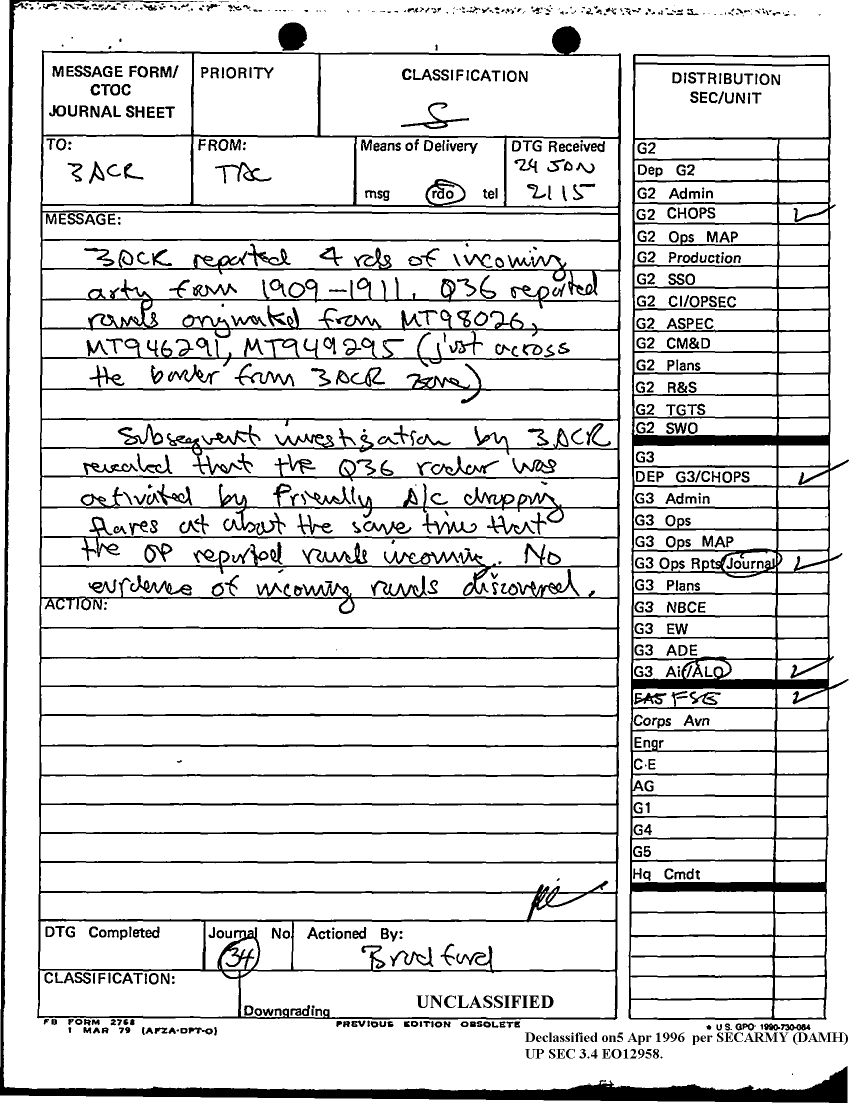 MESSAGE FORM/
CTOC
JOURNAL SHEET
PRIORITY
CLASSIFICATION
S
TO:
3ACR
FROM:
TAC
Means of Delivery
msg rdo tel
DTG Received
24 JAN
2115
MESSAGE:
3ACR reported 4 rds of incoming
arty from 1909-1911. Q36 reported
rounds originated from MT98026,
MT946291, MT949295 (just across
the border from 3ACR zone)
Subsequent investigation by 3ACR
revealed that the Q36 radar was
activated by friendly A/c dropping
flares at about the same time that
the OP reported rounds incoming. No
evidence of incoming rounds discovered.
ACTION:
DTG Completed
Journal No
34
Actioned By:
Bradford
CLASSIFICATION:
Downgrading
UNCLASSIFIED
FB FORM 2768
1 MAR 79 (AFZA-DPT-O)
PREVIOUS EDITION OBSOLETE
DISTRIBUTION
SEC/UNIT
G2
Dep G2
G2 Admin
G2 CHOPS
G2 Ops MAP
G2 Production
G2 SSO
G2 CI/OPSEC
G2 ASPEC
G2 CM&D
G2 Plans
G2 R&S
G2 TGTS
G2 SWO
G3
DEP G3/CHOPS
G3 Admin
G3 Ops
G3 Ops MAP
G3 Ops Rpts/Journal
G3 Plans
G3 NBCE
G3 EW
G3 ADE
G3 Air/ALO
FAS FSE
Corps Avn
Engr
C-E
AG
G1
G4
G5
Hq Cmdt
★ U.S. GPO: 1990-730-064
Declassified on5 Apr 1996 per SECARMY (DAMH)
UP SEC 3.4 EO12958.